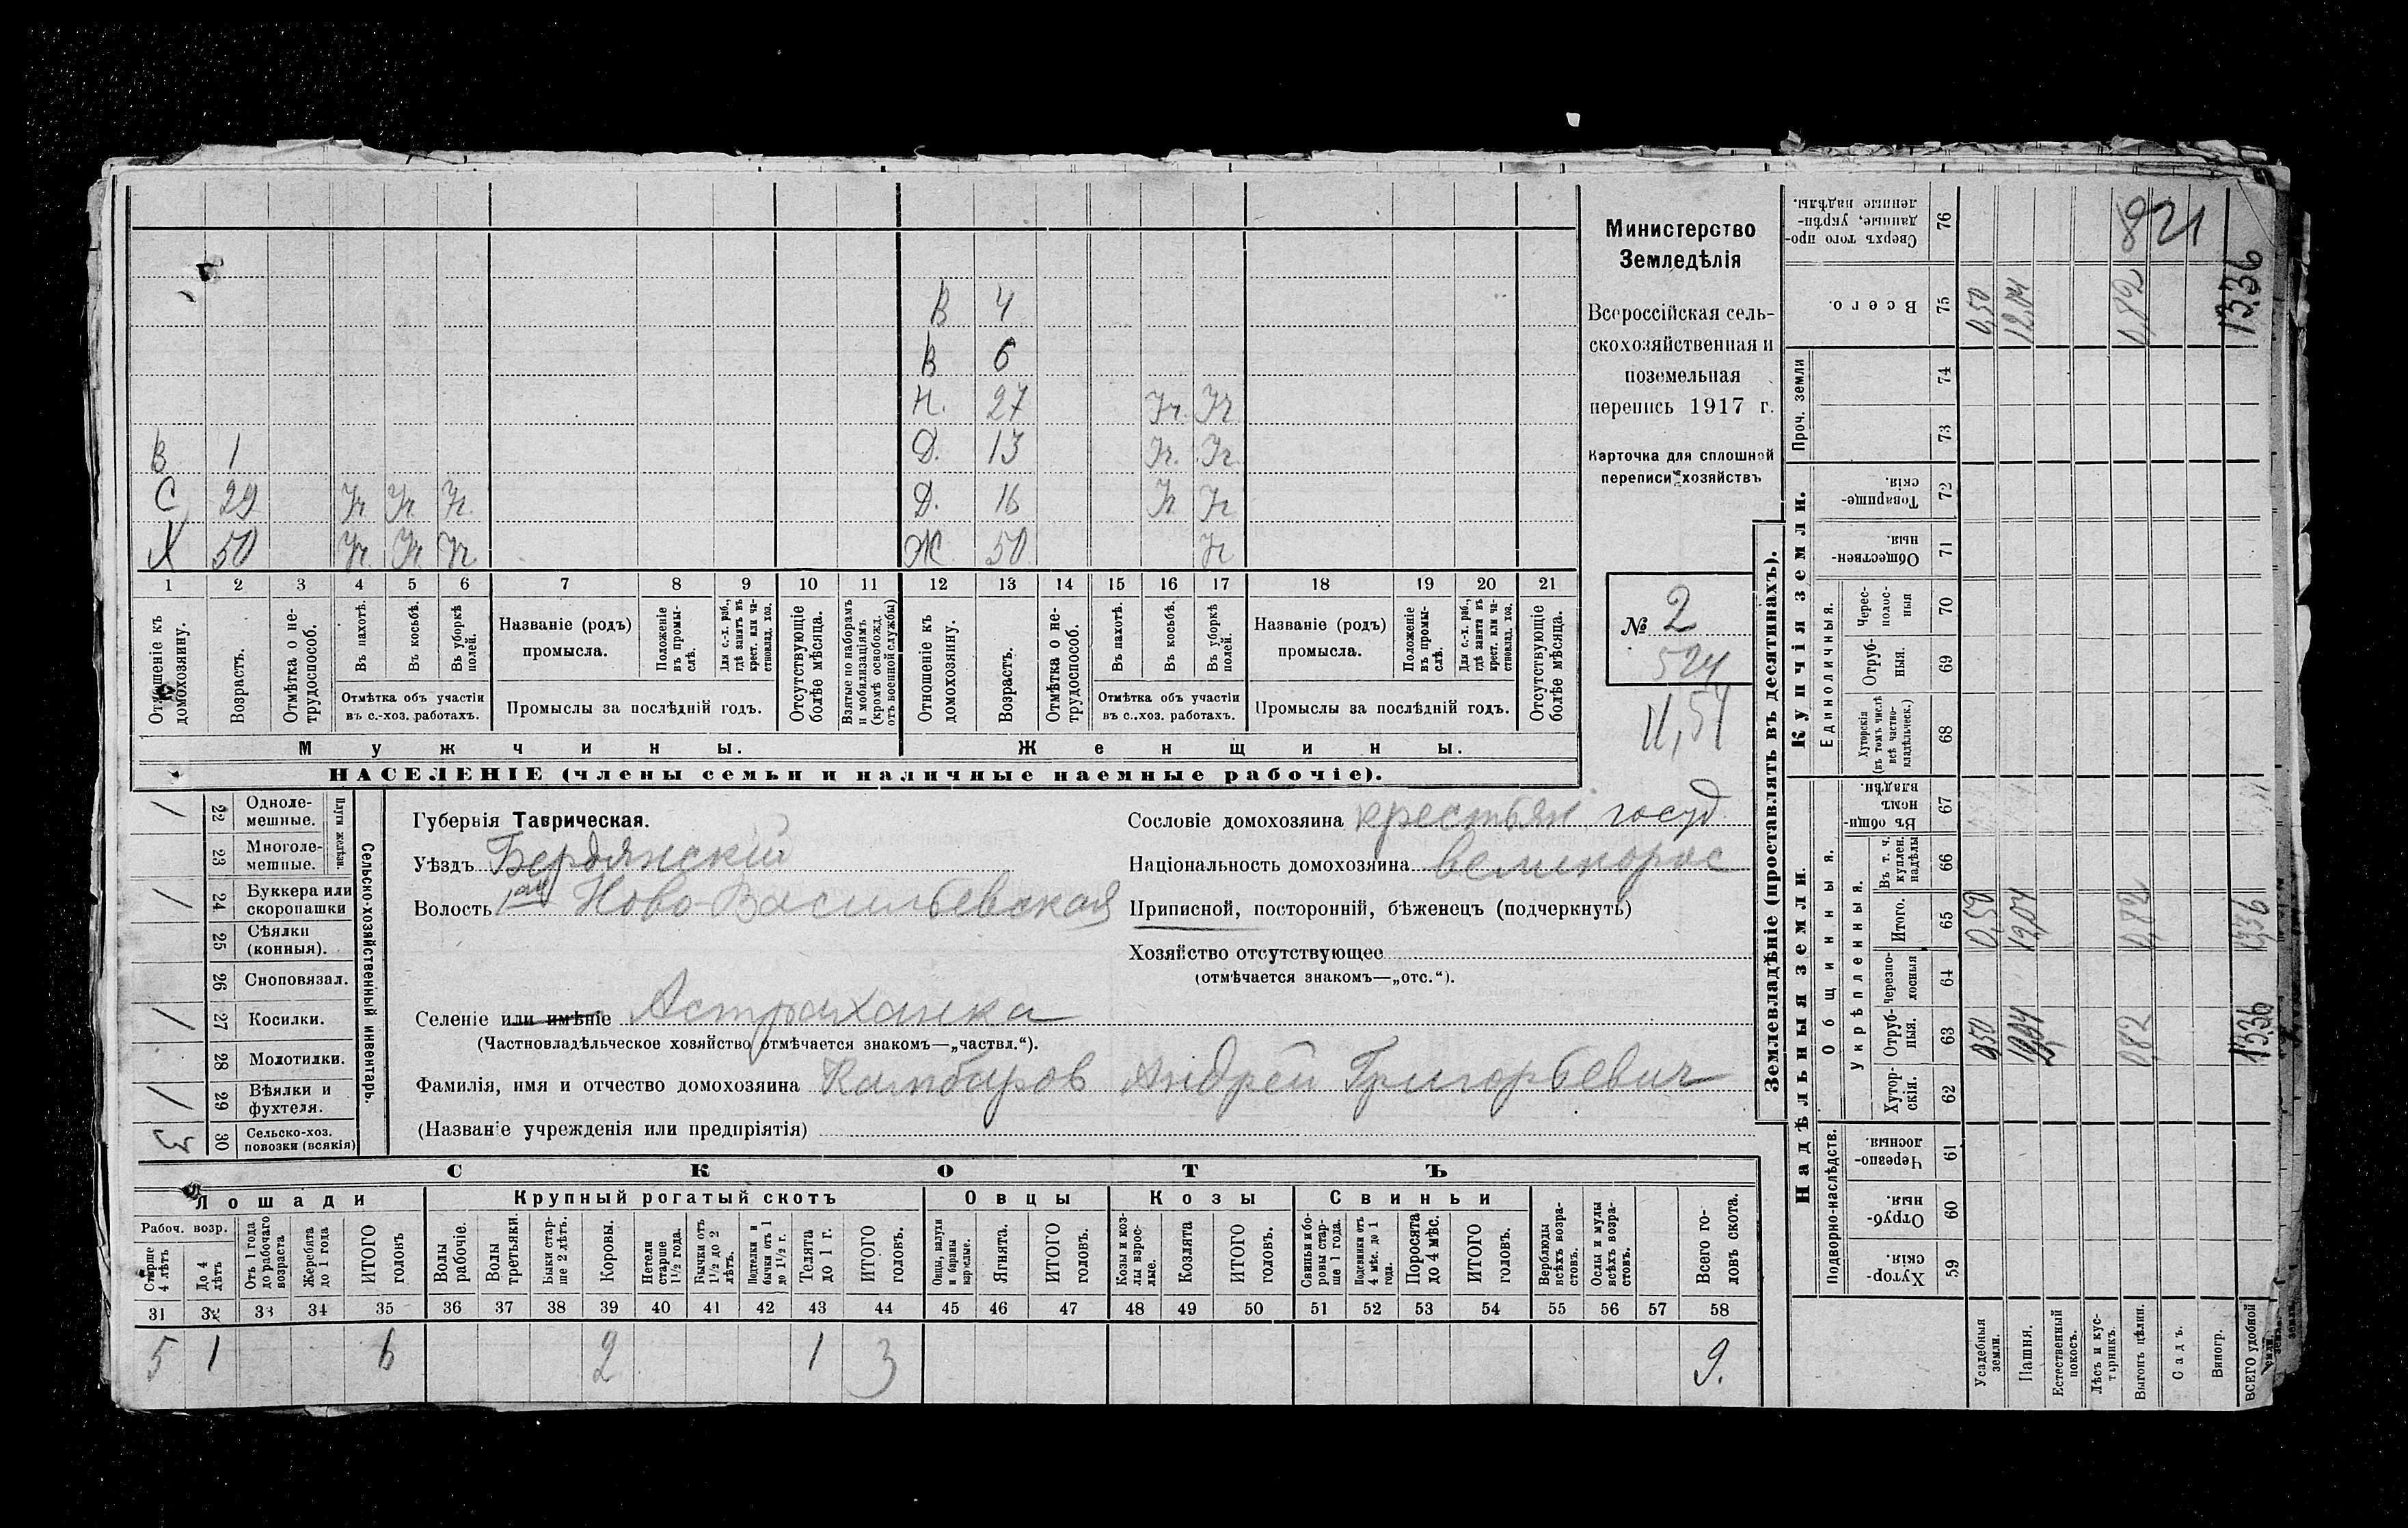 В 4
В 6
Н. 27 Уч. Уч.
В 1 Д. 13 Уч. Уч.
С 29 Уч. Уч. Уч. Д. 16 Уч. Уч.
Х 50 Уч. Уч. Уч. Ж 50 Уч.
1 2 3 4 5 6 7 8 9 10 11 12 13 14 15 16 17 18 19 20 21
Отношеніе къ домохозяину.
Возрастъ.
Отмѣтка о не-
трудоспособ.
Въ пахотѣ.
Въ косьбѣ.
Въ уборкѣ
полей.
Отмѣтка объ участіи
въ с.-хоз. работахъ.
Названіе (родъ)
промысла.
Положеніе
въ промы-
слѣ.
Для с.-х. раб.,
гдѣ занятъ въ
крест. или ча-
стновлад. хоз.
Промыслы за послѣдній годъ.
Отсутствующіе
болѣе мѣсяца.
Взятые по наборамъ
и мобилизаціямъ
(кромѣ освобожд.
отъ военной службы)
Отношеніе къ
домохозяину.
Возрастъ.
Отмѣтка о не-
трудоспособ.
Въ пахотѣ.
Въ косьбѣ.
Въ уборкѣ
полей.
Отмѣтка объ участіи
въ с..хоз. работахъ.
Названіе (родъ)
промысла.
Положеніе
въ промы-
слѣ.
Для с.-х. раб.,
гдѣ занята въ
крест. или ча-
стновлад. хоз.
Промыслы за послѣдній годъ.
Отсутствующіе
болѣе мѣсяца.
Мужчины.
Женщины.
НАСЕЛЕНІЕ (члены семьи и наличные наемные рабочіе).
Министерство
Земледѣлія
Всероссійская сель-
скохозяйственная и
поземельная
перепись 1917 г.
Карточка для сплошной
переписи хозяйствъ
№ 2
524
11,54
/ 22 Одноле-
мешные.
23 Многоле-
мешные.
Плуги желѣзн.
/ 24 Буккера или
скоропашки
25 Сѣялки
(конныя).
26 Сноповязал.
/ 27 Косилки.
28 Молотилки.
/ 29 Вѣялки и
фухтеля.
3 30 Сельско-хоз.
повозки (всякія)
Сельско-хозяйственный инвентарь.
Губернія Таврическая.
Уѣздъ Бердянскій
Волость 1ая Ново-Васильевская
Селеніе или имѣніе Астраханка
(Частновладѣльческое хозяйство отмѣчается знакомъ—„частвл.“).
Фамилія, имя и отчество домохозяина Камбуров Андрей Григорьевич
(Названіе учрежденія или предпріятія)
Сословіе домохозяина крестьян. госуд
Національность домохозяина великорос
Приписной, посторонній, бѣженецъ (подчеркнуть)
Хозяйство отсутствующее
(отмѣчается знакомъ—„отс.“).
СКОТЪ
Лошади
Крупный рогатый скотъ
Овцы
Козы
Свиньи
Рабоч. возр.
Старше
4 лѣтъ
До 4
лѣтъ
Отъ 1 года
до рабочаго
возраста
Жеребята
до 1 года
ИТОГО
головъ
Волы
рабочіе.
Волы
третьяки.
Быки стар-
ше 2 лѣтъ.
Коровы.
Нетели
старше
1½ года.
Бычки отъ
1½ до 2
лѣтъ.
Подтелки и
бычки отъ 1
до 1½ г.
Телята
до 1 г.
ИТОГО
головъ.
Овцы, валухи
и бараны
взрослые.
Ягнята.
ИТОГО
головъ.
Козы и коз-
лы взрос-
лые.
Козлята
ИТОГО
головъ.
Свиньи бо-
ровы стар-
ше 1 года.
Подсвинки отъ
4 мѣс. до 1
года.
Поросята
до 4 мѣс.
ИТОГО
головъ.
Верблюды
всѣхъ возра-
стовъ.
Ослы и мулы
всѣхъ возра-
стовъ.
Всего го-
ловъ скота.
31 32 33 34 35 36 37 38 39 40 41 42 43 44 45 46 47 48 49 50 51 52 53 54 55 56 57 58
5 1 6 2 1 3 9.
Землевладѣніе (проставлять въ десятинахъ).
Надѣльныя земли.
Купчія земли.
Проч. земли
Подворно-наслѣдств.
Общинныя.
Укрѣпленныя.
Единоличныя.
Хутор-
скія.
59
Отруб-
ныя.
60
Черезпо-
лосныя
61
Хутор-
скія.
62
Отруб-
ныя.
63
Черезпо-
лосныя
64
Итого.
65
Въ т. ч.
куплен.
надѣлы
66
Въ общин-
номъ
владѣн.
67
Хуторскія
(въ томъ числѣ
всѣ частно-
владѣльческ.)
68
Отруб-
ныя.
69
Черес-
полос-
ныя
70
Обществен-
ныя.
71
Товарище-
скія.
72
73
74
Всего.
75
Сверхъ того про-
данные, укрѣп-
ленные надѣлы.
76
Усадебныя
земли.
0,50 0,50 0,50
Пашня.
12,04 12,04
Естественный
покосъ.
Лѣсъ и кус-
тарникъ.
Выгонъ цѣлин.
0,82 0,82 0,82
Садъ.
Виногр.
ВСЕГО удобной
земли.
13,36 13,36 13,36
821